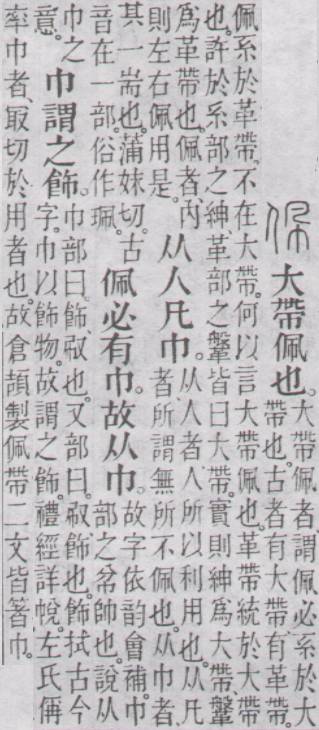 佩大帶佩也。
大帶佩者、謂佩必系於大
帶也。古者有大帶、有革帶。
佩系於革帶、不在大帶。何以言大帶佩也。革帶統於大帶
也。許於糸部之紳、革部之鞶皆曰大帶。實則紳爲大帶、鞶
爲革帶也。佩者、內
則左右佩用是。
从人凡巾。
从人者、人所以利用也。从凡
者、所謂無所不佩也。从巾者、
其一耑也。蒲妹切。古
音在一部。俗作珮。
佩必有巾。故从巾。
故字依韵會補。巾
部之帉帥也。說从
巾之
意。
巾謂之飾。
巾部曰。飾、㕞也。又部曰。㕞飾也。飾拭古今
字。巾以飾物。故謂之飾。禮經詳帨。左氏偁
率巾者、取切於用者也。故倉頡製佩帶二文皆箸巾。